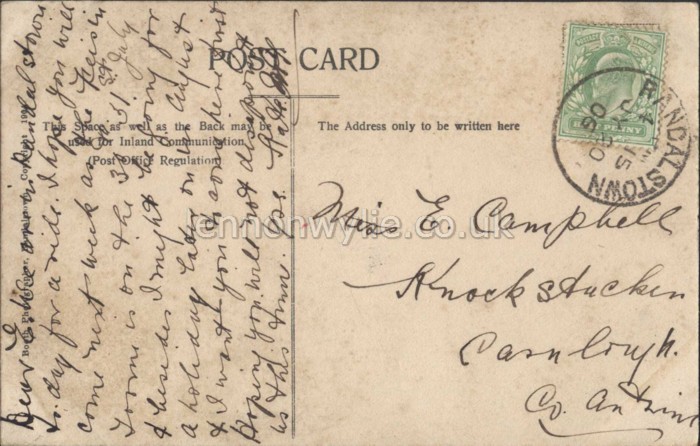 POST CARD
This Space as well as the Back may be
used for Inland Communication.
(Post Office Regulation)
The Address only to be written here
RANDALSTOWN
HALFPENNY
Miss E. Campbell
Knockstacken
Carnlough.
Co. Antrim
Dear E. We are in Randalstown
to-day for a ride. I hope you will
come next week as the Feis in
Toome is on the 30 & 31st July
& besides I might be going for
a holiday later on in August
& I want you to come here first
Hoping you will not disappoint
us this time. love
lennonwylie.co.uk